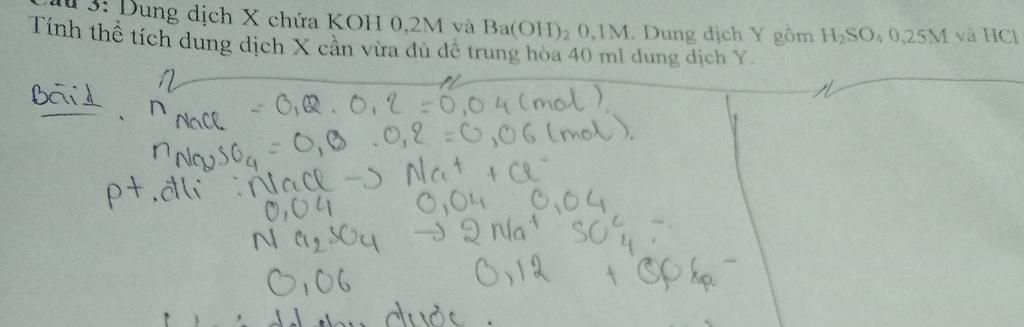 Câu 3: Dung dịch X chứa KOH 0,2M và Ba(OH)₂ 0,1M. Dung dịch Y gồm H₂SO₄ 0,25M và HCl
Tính thể tích dung dịch X cần vừa đủ để trung hòa 40 ml dung dịch Y.
Bài 1
n NaCl = 0,2 . 0,2 = 0,04 (mol).
n Na₂SO₄ = 0,3 . 0,2 = 0,06 (mol).
pt.đli : NaCl -> Na⁺ + Cl⁻
0,04 0,04 0,04
Na₂SO₄ -> 2Na⁺ SO₄
0,06 0,12 +
được